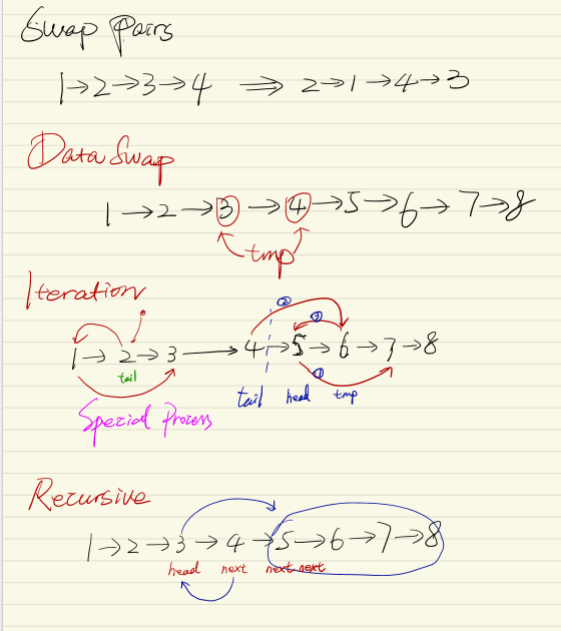 Swap Pairs
1→2→3→4 ⟹ 2→1→4→3
Data Swap
1→2→3→4→5→6→7→8
tmp
Iteration
② 
③
1→2→3→4→5→6→7→8
tail
①
tail head tmp
Special Process
Recursive
1→2→3→4→5→6→7→8
head next next next